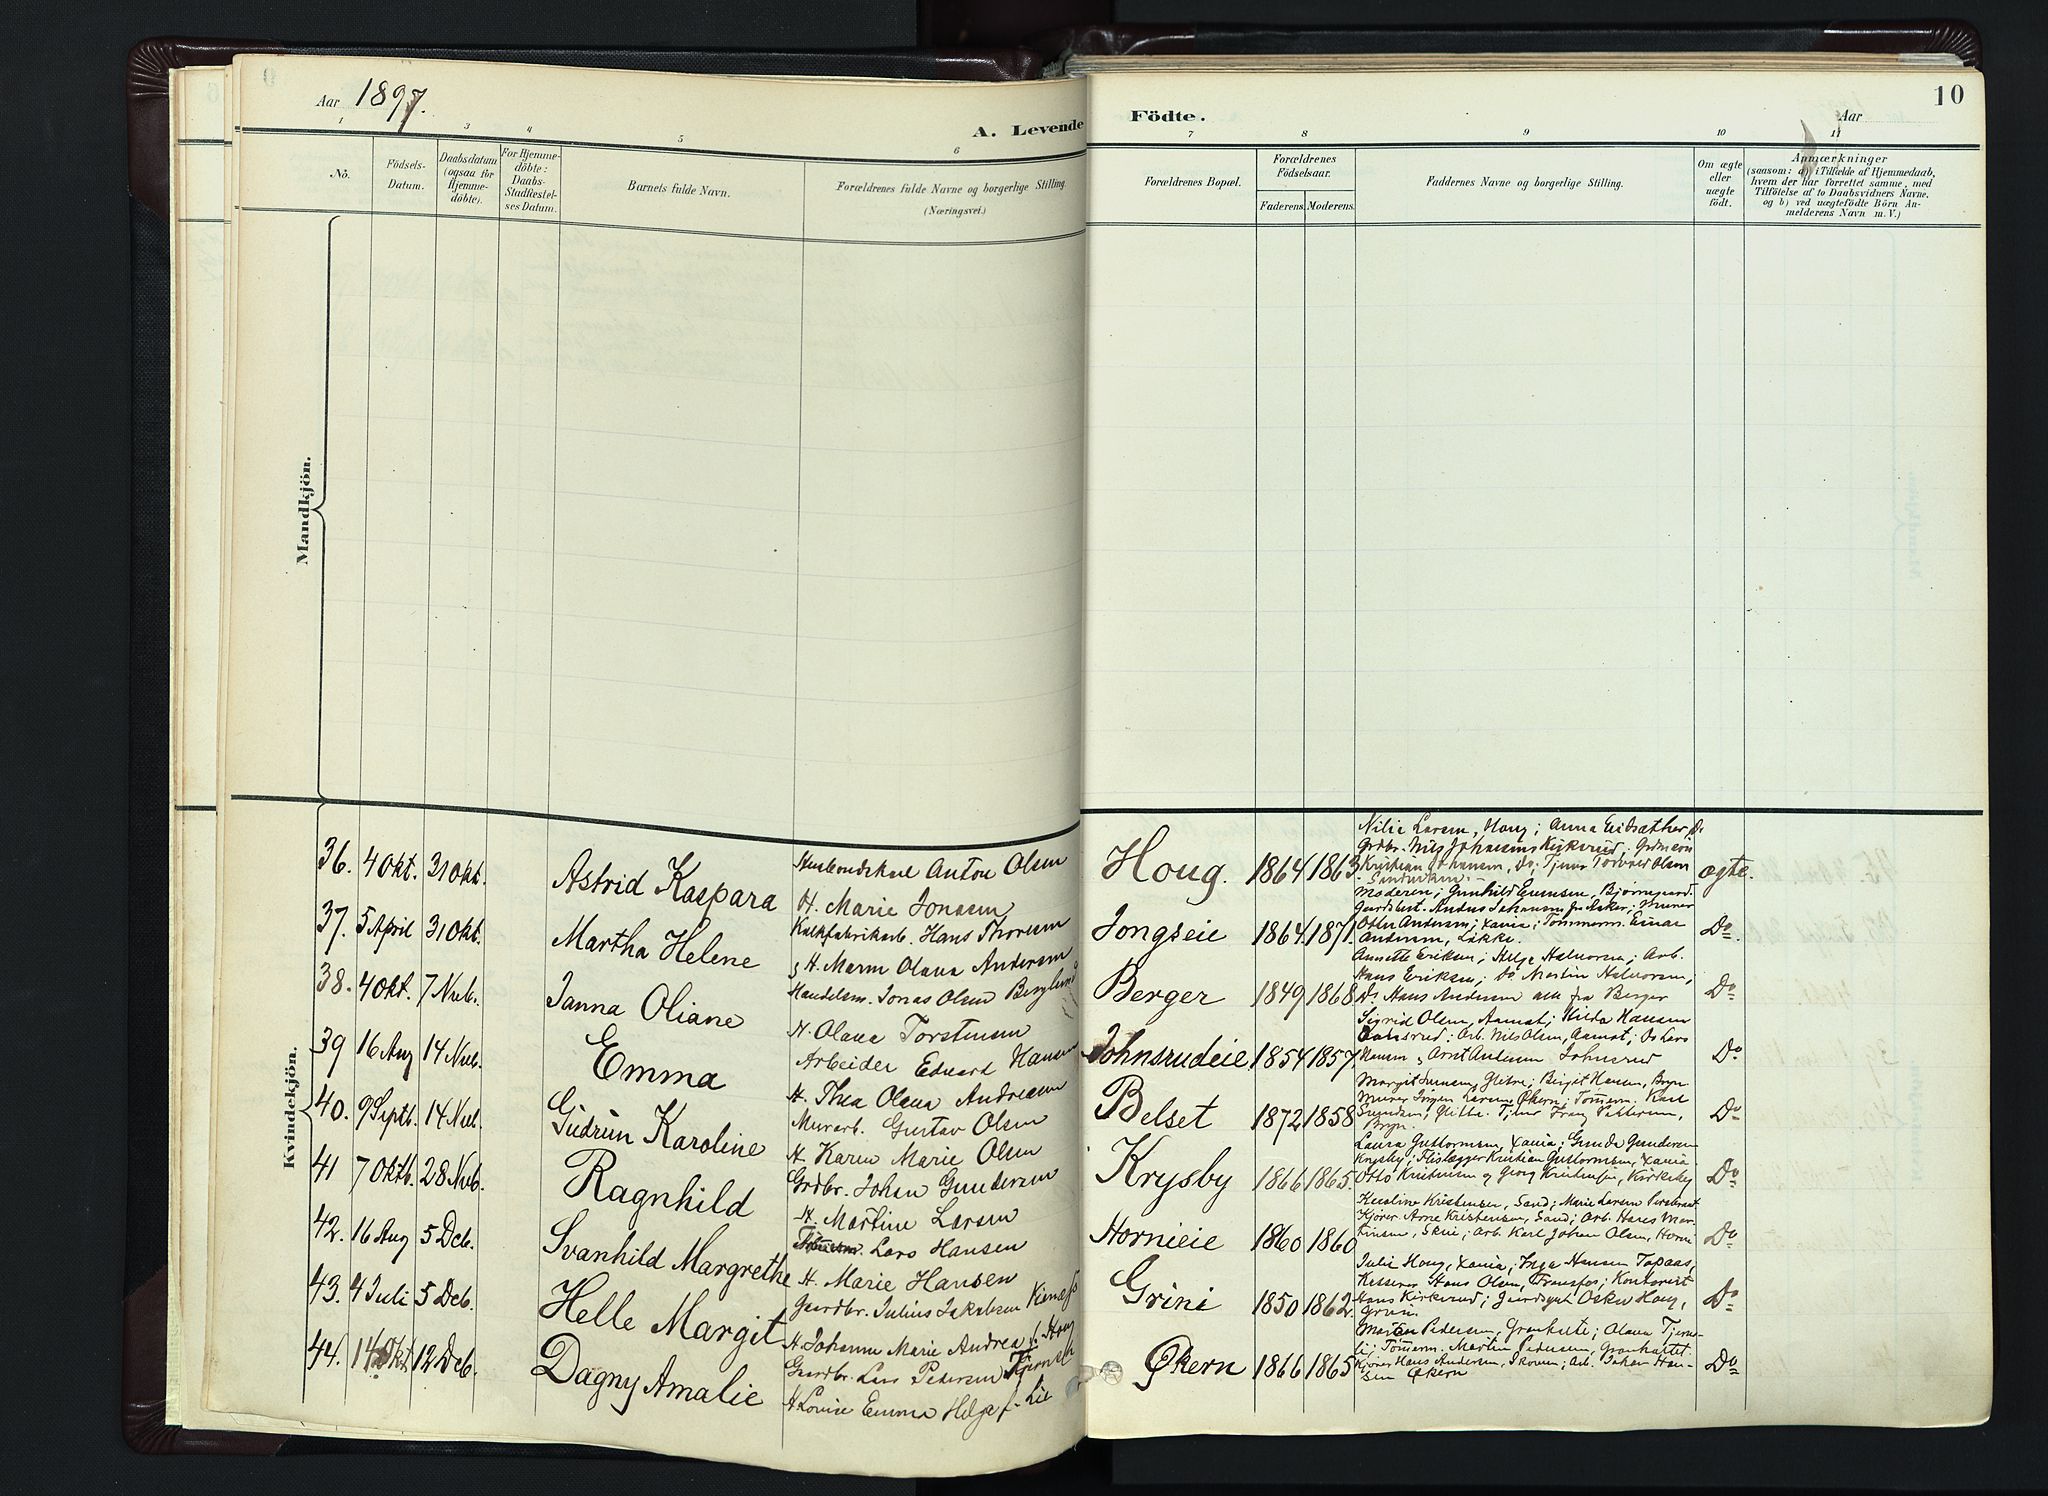 Aar 1897.
A. Levende Födte.
Aar
10
1 3 4 5 6 7 8 9 10 11
No.
Födsels-Datum.
Daabsdatum (ogsaa for Hjemme-döbte).
For Hjemme-döbte: Daabs-Stadfæstel-ses Datum.
Barnets fulde Navn.
Forældrenes fulde Navne og borgerlige Stilling.
(Næringsvei.)
Forældrenes Bopæl.
Forældrenes Födselsaar.
Faderens. Moderens.
Faddernes Navne og borgerlige Stilling.
Om ægte eller uægte födt.
Anmærkninger
(saasom: a) i Tilfælde af Hjemmedaab,
hvem der har forrettet samme, med
Tilföielse af to Daabsvidners Navne.
og b) ved uægtefödte Börn An-
melderens Navn m. V.)
Mandkjön.
Kvindekjön.
36. 4 Okt. 31 Okt. Astrid Kaspara
Anton Olsen
H. Marie Jonasen
Houg. 1864 1863
Nilia Larsen, Houg; Anna Eidsæther, Do
Grdbr. Nils Johansens Kirkerud;
Kristian Johansen, Do; Tjener Torvald Olsen
ægte.
37. 5 April 31 Okt. Martha Helene
Kalkfabrikarb. Hans Thoresen
H. Maren Olava Andersen
Jongseie 1864 1871.
Moderen; Gunhild Evensen, Bjørnegaard.
Gaardsbest. Anders Johansen fra Asker; Murer
Otto Andersen, Xania; Tømmerm. Einar
Andersen, Løkke.
Do
38. 4 Okt. 7 Nvb. Janna Oliane
Handelsm. Jonas Olsen Berglund
H. Olava Torstensen
Berger 1849 1868
Annette Eriksen; Helje Halvorsen; Arb.
Hans Eriksen; do Martin Halvorsen,
Do Hans Andersen alle fra Berger
Do
39 16 Aug 14 Nvb. Emma
Arbeider Edvard Hansen
H. Thea Olava Andresen
Johnsrudeie 1854 1857
Sigrid Olsen, Aamot; Hilda Hansen
Johnsrud; Arb. Nils Olsen, Aamot; Do Lars
Hansen, Arnt Andersen Johnsrud
Do
40. 9 Septb. 14 Nvb. Gudrun Karoline
Murarb. Gustav Olsen
H. Karen Marie Olsen
Belset 1872 1858
Margit Svensen, Glitre; Birgit Hansen, Bryn
Murer Jørgen Larsen Økern; Tømerm. Karl
Svendsen, Glitre. Tjener Franz Pettersen,
Bryn.
Do
41 7 Oktb. 28 Nvb. Ragnhild
Grdbr. Johan Gundersen
H. Martine Larsen
Krysby 1866 1865
Laura Guttormsen, Xania; Gunda Gundersen
Krysby; Flislægger Kristian Guttormsen, Xania.
Otto Kristensen og Georg Kristensen, Kirkeby
Do
42. 16 Aug 5 Deb. Svanhild Margrethe
Lars Hansen
H. Marie Hansen
Hornieie 1860 1860
Karoline Kristensen, Sand; Marie Larsen
Kjører Arne Kristensen, Sand; Arb. Hans Mar-
tinsen, Skui; Arb. Karl Johan Olsen, Horni
Do
43. 4 Juli 5 Deb. Helle Margit
Gaardbr. Julius Jakobsen
H. Johanne Marie Andrea f. Houg
Grini 1850 1862.
Julie Houg, Xania; Inga Hansen Topaas,
Hans Olsen, Fransfos; Kontorist
Hans Kirkerud; Oskar Houg,
Grini.
Do
44. 14 Okt. 12 Deb. Dagny Amalie
Gaardbr. Lars Pedersen
H. Louise Emma Helga f. Lie
Økern 1866 1865
Pedersen, Granholte; Olava Tjerns-
li; Tømerm. Martin Pedersen, Granholtet
Kjører Hans Andersen, Skoven; Arb. Johan Han-
sen Økern
Do